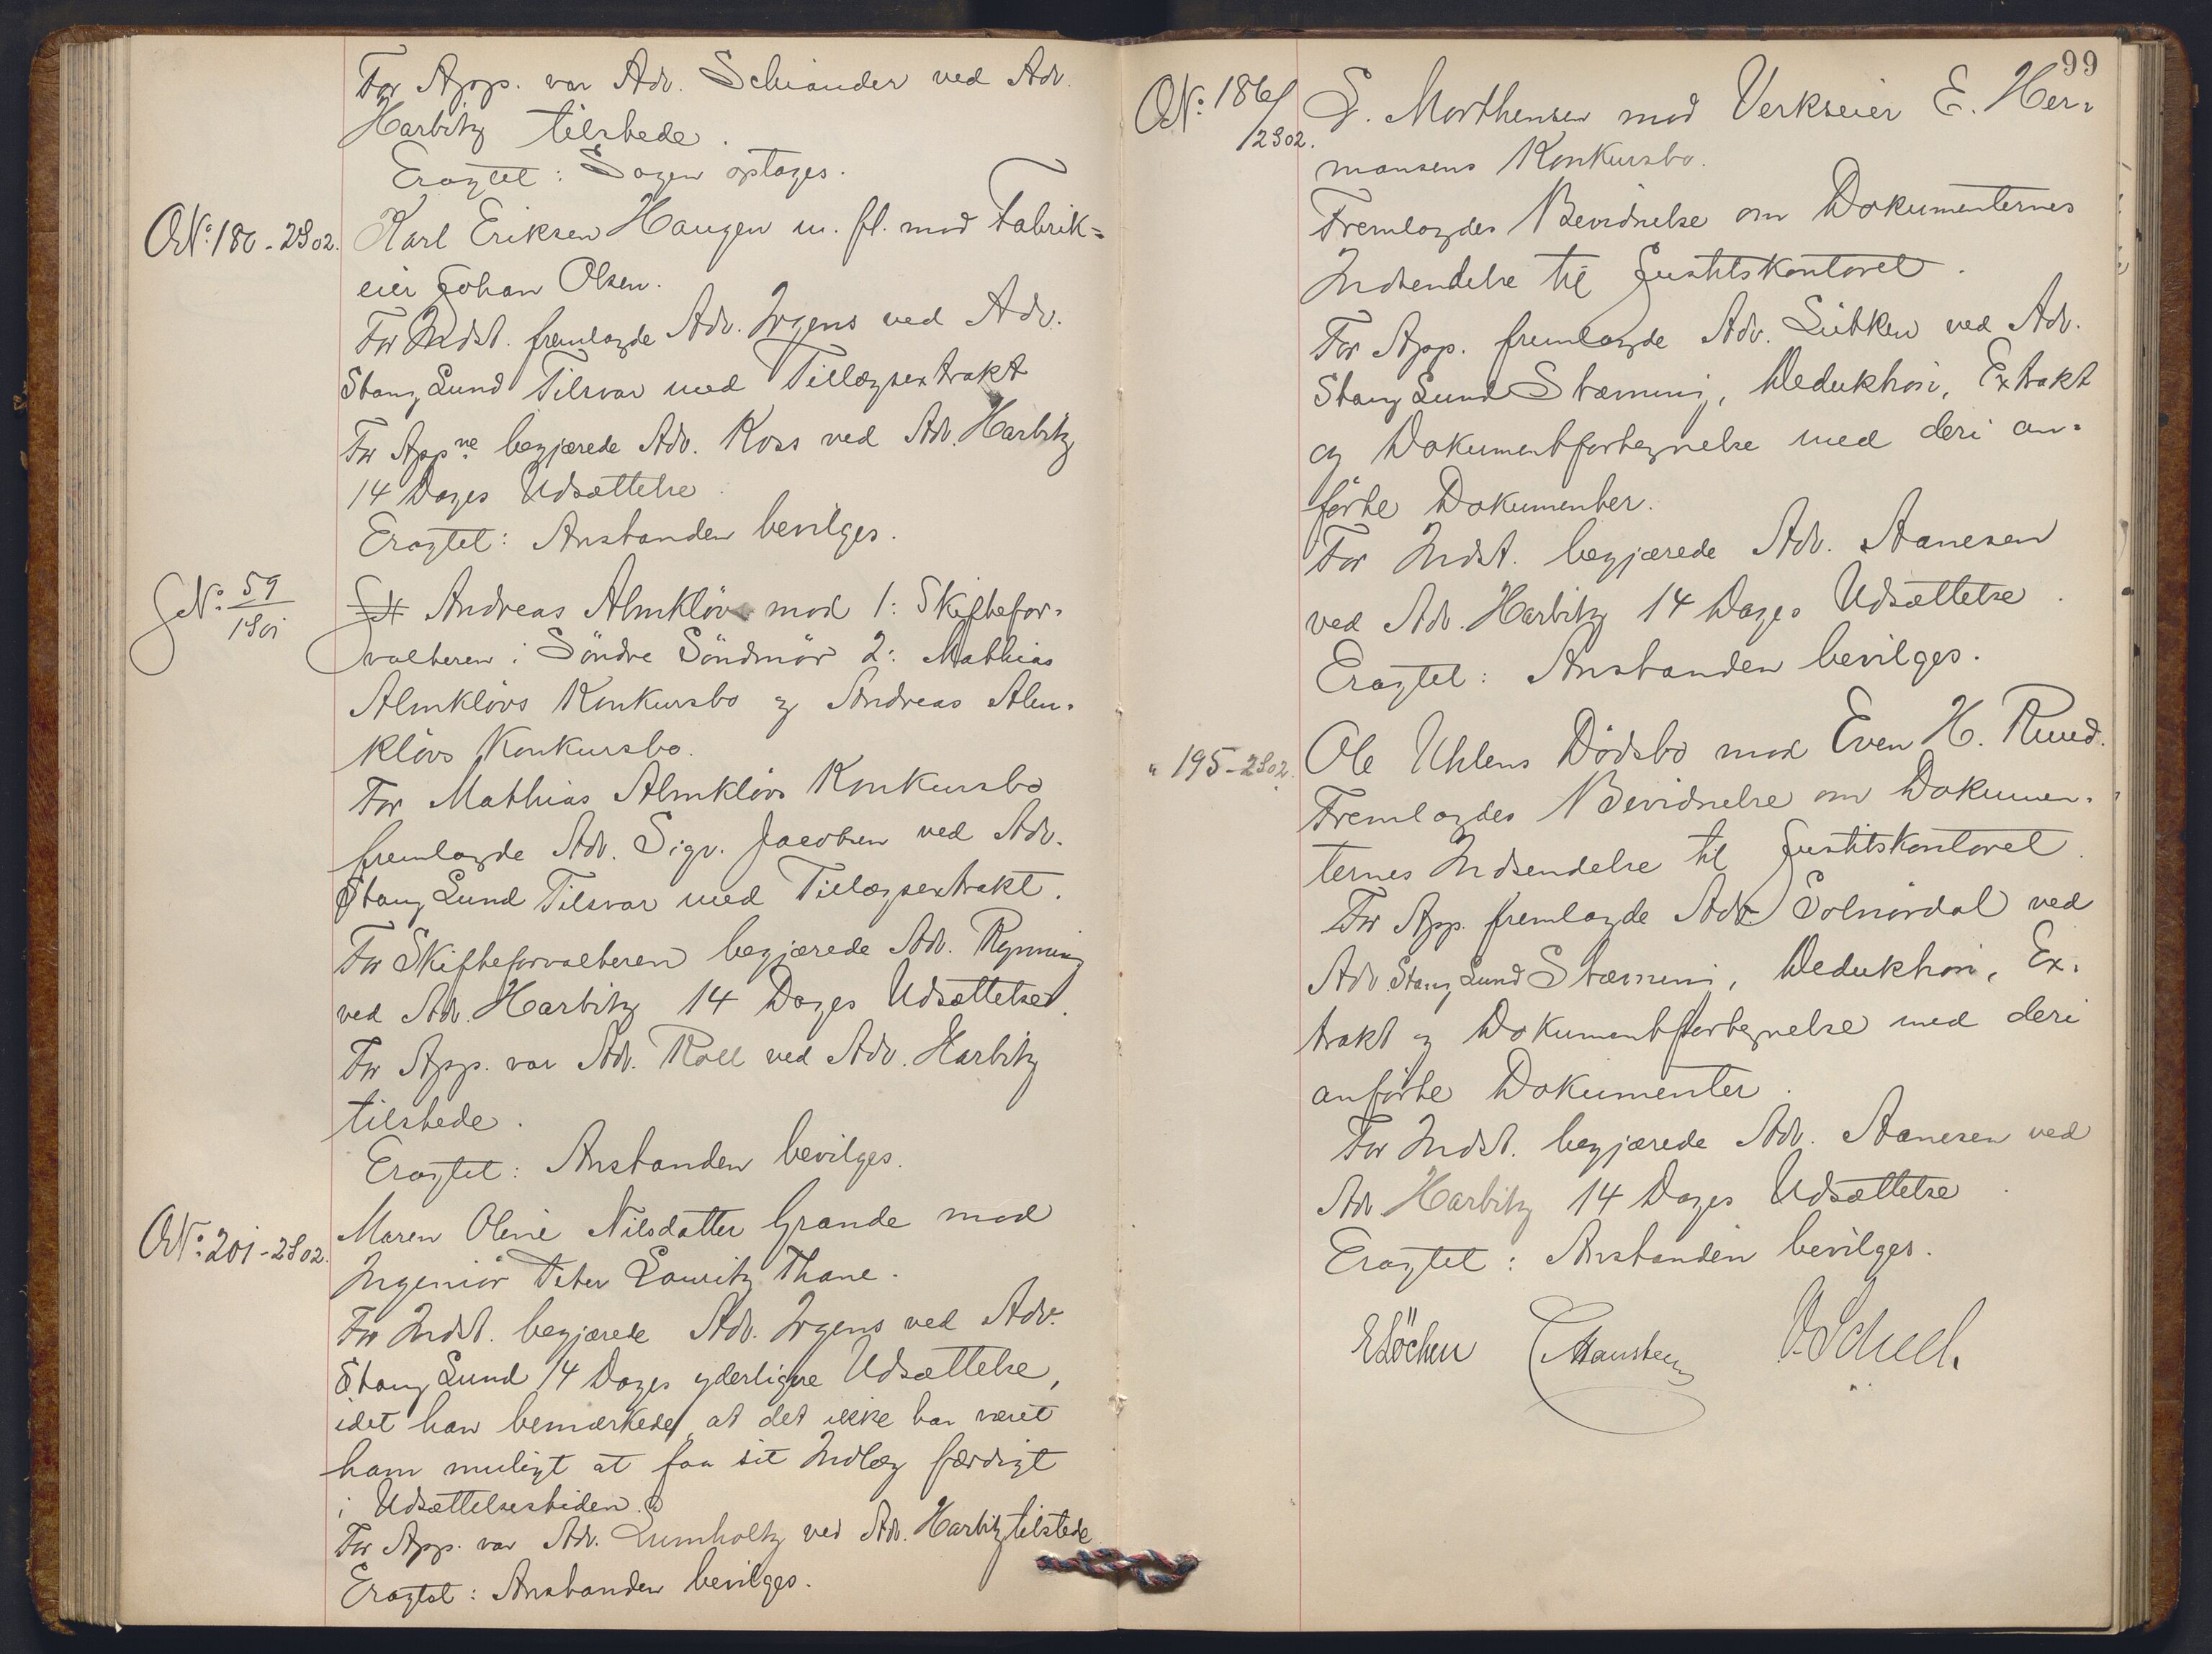 For App. var Adv. Schiander ved Adv.
Harbitz tilstede.
Eragtet: Sagen optages.
O.N.o 180 - 2S02. Karl Eriksen Haugen m. fl. mod Fabrik=
eier Johan Olsen.
For Indst. fremlagde Adv. Irgens ved Adv.
Stang Lund Tilsvar med Tillægsextrakt
For Appne begjærede Adv. Koss ved Adv. Harbitz
14 Dages Udsættelse.
Eragtet: Anstanden bevilges.
G.N.o 59/1S01 Andreas Almkløv mod 1: Skiftefor=
valteren i Søndre Søndmør 2: Mathias
Almkløvs Konkursbo og Andreas Alm=
kløvs Konkursbo.
For Mathias Almkløvs Konkursbo
fremlagde Adv. Sigv. Jacobsen ved Adv.
Stang Lund Tilsvar med Tillægsextrakt.
For Skifteforvalteren begjærede Adv. Rynning
ved Adv. Harbitz 14 Dages Udsættelse.
For App. var Adv. Roll ved Adv. Harbitz
tilstede.
Eragtet: Anstanden bevilges.
O.N.o 201 - 2S02. Maren Oline Nilsdatter Grande mod
Ingeniør Peter Lauritz Thane.
For Indst. begjærede Adv. Irgens ved Adv.
Stang Lund 14 Dages yderligere Udsættelse,
idet han bemærkede, at det ikke har været
ham muligt at faa sit Indlæg færdigt
i Udsættelsestiden.
For App. var Adv. Lumholtz ved Adv. Harbitz tilstede
Eragtet: Anstanden bevilges.
99
O.N.o 186/2S02. S. Morthensen mod Verkseier E. Her=
mansens Konkursbo.
Fremlagdes Bevidnelse om Dokumenternes
Indsendelse til Justitskontoret.
For App. fremlagde Adv. Lütken ved Adv.
Stang Lund Stævning, Deduktion, Extrakt
og Dokumentfortegnelse med deri an=
førte Dokumenter.
For Indst. begjærede Adv. Aanesen
ved Adv. Harbitz 14 Dages Udsættelse.
Eragtet: Anstanden bevilges.
" 195 - 2S02. Ole Uhlens Dødsbo mod Even H. Ruud.
Fremlagdes Bevidnelse om Dokumen=
ternes Indsendelse til Justitskontoret.
For App. fremlagde Adv. Solnørdal ved
Adv. Stang Lund Stævning, Deduktion, Ex=
trakt og Dokumentfortegnelse med deri
anførte Dokumenter.
For Indst. begjærede Adv. Aanesen ved
Adv Harbitz 14 Dages Udsættelse.
Eragtet: Anstanden bevilges.
E Löchen C Hansteen V. Scheel.